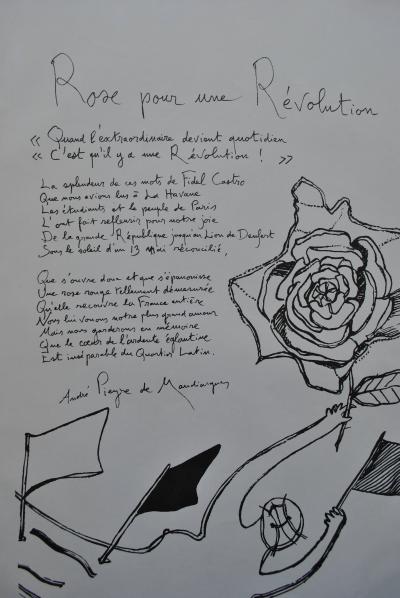 Rose pour une Révolution
« Quand l'extraordinaire devient quotidien
« C'est qu'il y a une Révolution ! »
La splendeur de ces mots de Fidel Castro
Que nous avions lus à La Havane
Les étudiants et le peuple de Paris
L'ont fait refleurir pour notre joie
De la grande République jusqu'au Lion de Denfert
Sous le soleil d'un 13 Mai réconcilié,
Que s'ouvre donc et que s'épanouisse
Une rose rouge tellement démesurée
Qu'elle recouvre la France entière
Nous lui vouons notre plus grand amour
Mais nous garderons en mémoire
Que le cœur de l'ardente églantine
Est inséparable du Quartier Latin.
André Pieyre de Mandiargues